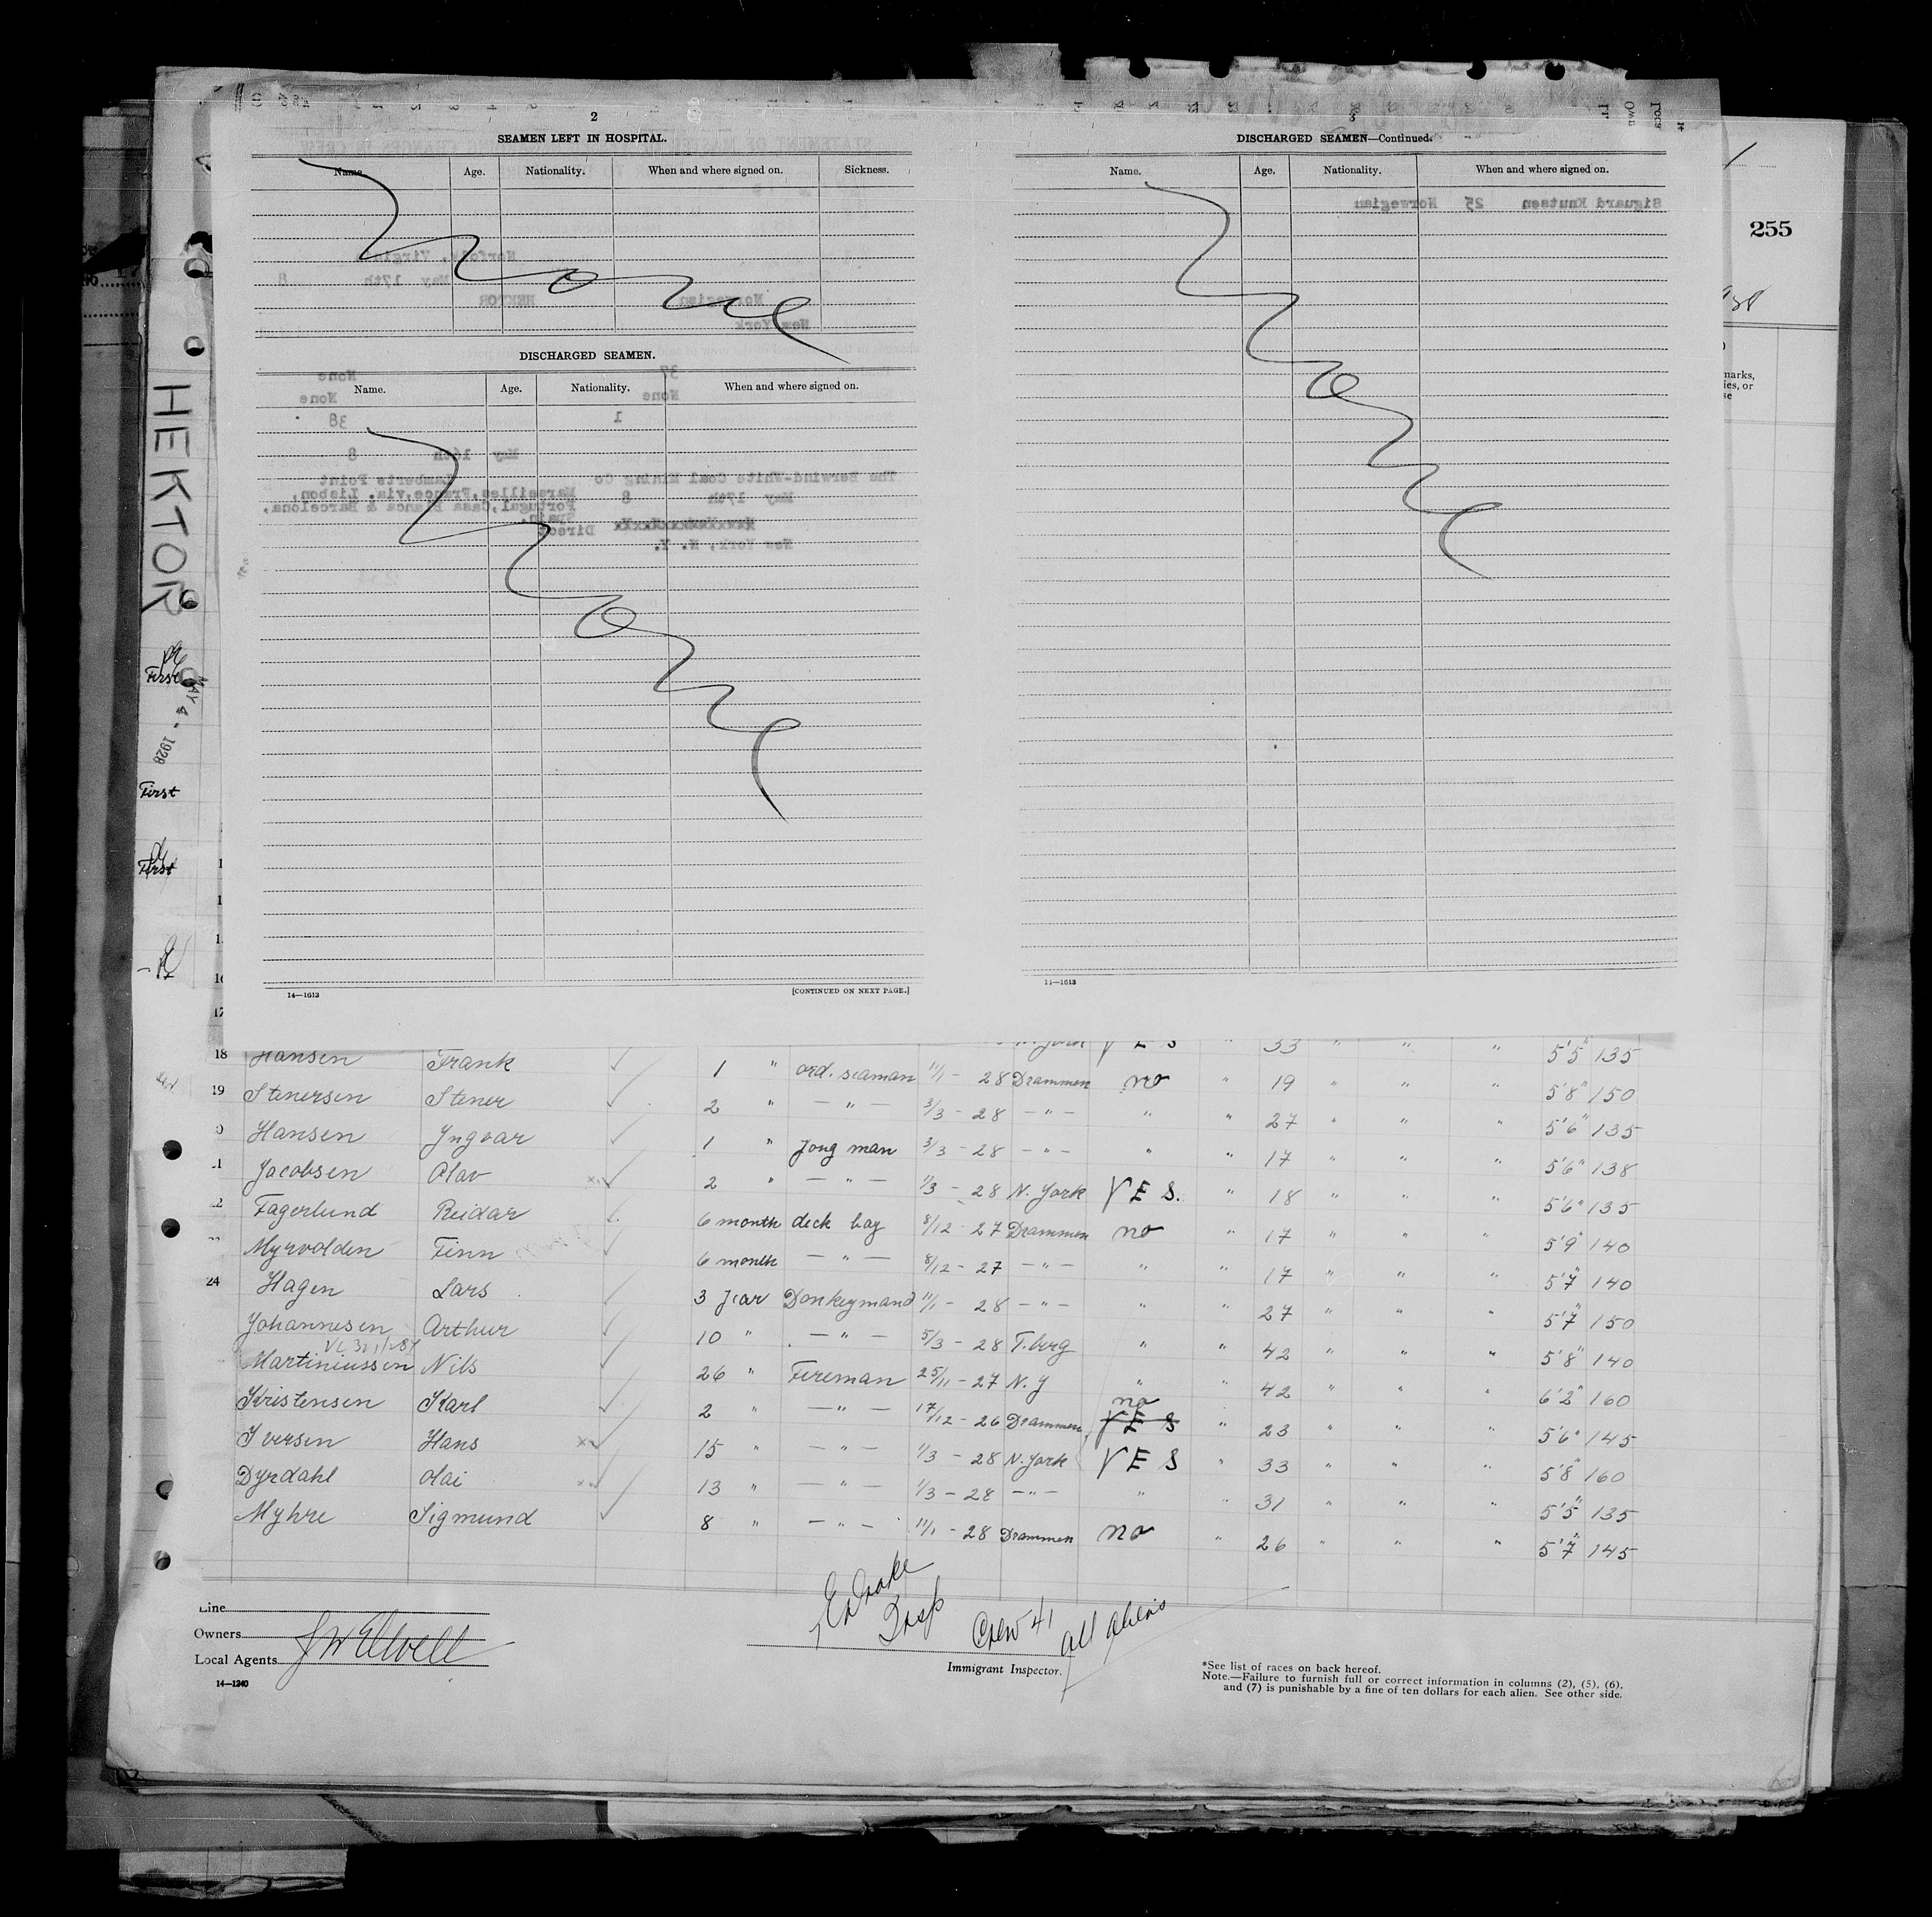 2
SEAMEN LEFT IN HOSPITAL.
Name. Age. Nationality. When and where signed on. Sickness.
None
DISCHARGED SEAMEN.
Name. Age. Nationality. When and where signed on.
None
14—1613 [CONTINUED ON NEXT PAGE.]
3
DISCHARGED SEAMEN—Continued.
Name. Age. Nationality. When and where signed on.
Siguard Knutsen 25 Norwegian
None
11—1613
Norfolk, Virginia
May 17th 8
Norwegian HEKTOR
New York
37 None
None None
1 38
May 16th 8
The Berwind-White Coal Mining Co Lamberts Point
May 17th 8 Marseilles, France, via. Lisbon,
Portugal, Casa Blanca & Barcelona,
Spain.
Direct
New York, N. Y.
255
HEKTOR
MAY 4 - 1928
First
First
First
18 Hansen Frank 1 " ord. seaman 11/1 - 28 Drammen no " 19 " " " 5'5" 135
19 Stenersen Stener 2 " — " — 3/3 - 28 — " — " " 27 " " " 5'8" 150
Hansen Yngvar 1 " Jong man 3/3 - 28 — " — " " 17 " " " 5'6" 135
Jacobsen Olav 2 " — " — 1/3 - 28 N. York YES. " 18 " " " 5'6" 138
Fagerlund Reidar 6 month deck boy 8/12 - 27 Drammen no " 17 " " " 5'6" 135
Myrvolden Finn 6 month — " — 8/12 - 27 — " — " " 17 " " " 5'9" 140
24 Hagen Lars 3 Jear Donkeymand 11/1 - 28 — " — " " 27 " " " 5'7" 140
Johannesen Arthur 10 " — " — 5/3 - 28 T.berg " " 42 " " " 5'7" 150
Martiniussen Nils 26 " Fireman 25/11 - 27 N.Y " " 42 " " " 5'8" 140
Kristensen Karl 2 " — " — 17/12 - 26 Drammen no YES " 23 " " " 6'2" 160
Iversen Hans 15 " — " — 1/3 - 28 N. York YES " 33 " " " 5'6" 145
Dyrdahl Olai 13 " — " — 1/3 - 28 — " — " " 31 " " " 5'8" 160
Myhre Sigmund 8 " — " — 11/1 - 28 Drammen no " 26 " " " 5'5" 135
5'7" 145
Line
Owners
Local Agents J W Elwell
14—1240
Crew 41 all aliens
Immigrant Inspector.
*See list of races on back hereof.
Note.—Failure to furnish full or correct information in columns (2), (5), (6),
and (7) is punishable by a fine of ten dollars for each alien. See other side.